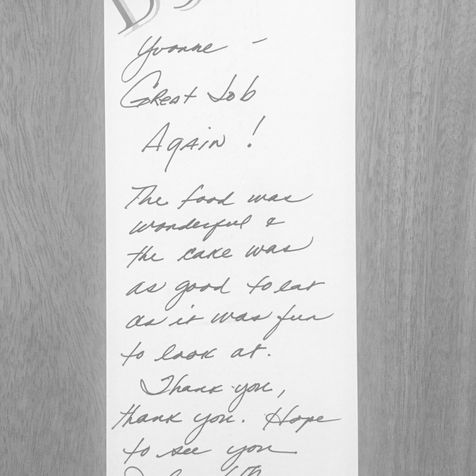 Yvonne –
Great Job
Again !
The food was
wonderful &
the cake was
as good to eat
as it was fun
to look at.
Thank you,
thank you. Hope
to see you